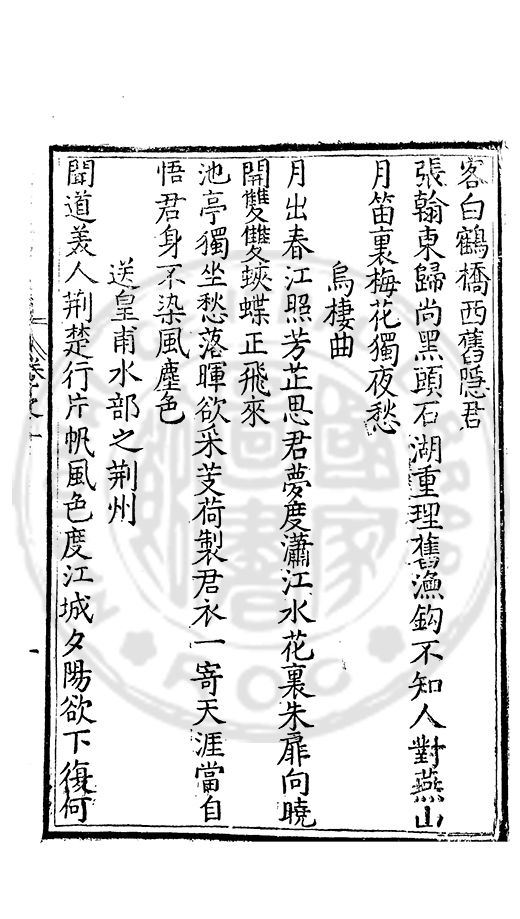 客白鶴橋西舊隱君
張翰東歸尚黑頭石湖重理舊漁鈎不知人對燕山
月笛裏梅花獨夜愁
烏棲曲
月出春江照芳芷思君夢度瀟江水花裏朱扉向曉
開雙雙蛺蝶正飛來
池亭獨坐愁落暉欲采芰荷製君衣一寄天涯當自
悟君身不染風塵色
送皇甫水部之荆州
聞道美人荆楚行片帆風色度江城夕陽欲下復何